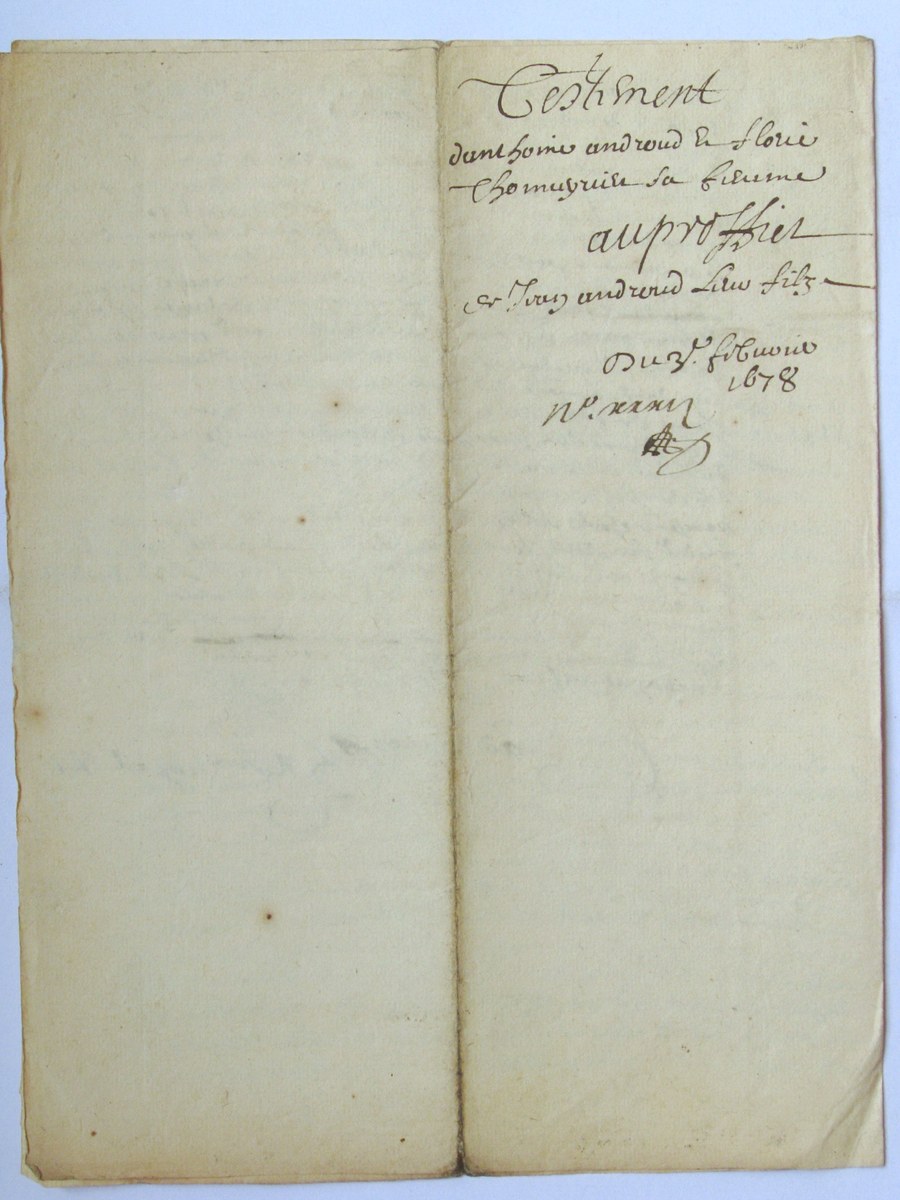 Testiment
danthoine androud et florie
Thomeyrieu sa feume
au proffiet
de Jean androud Leur filz
Du 3e. febvrier
1678
No. xxxii